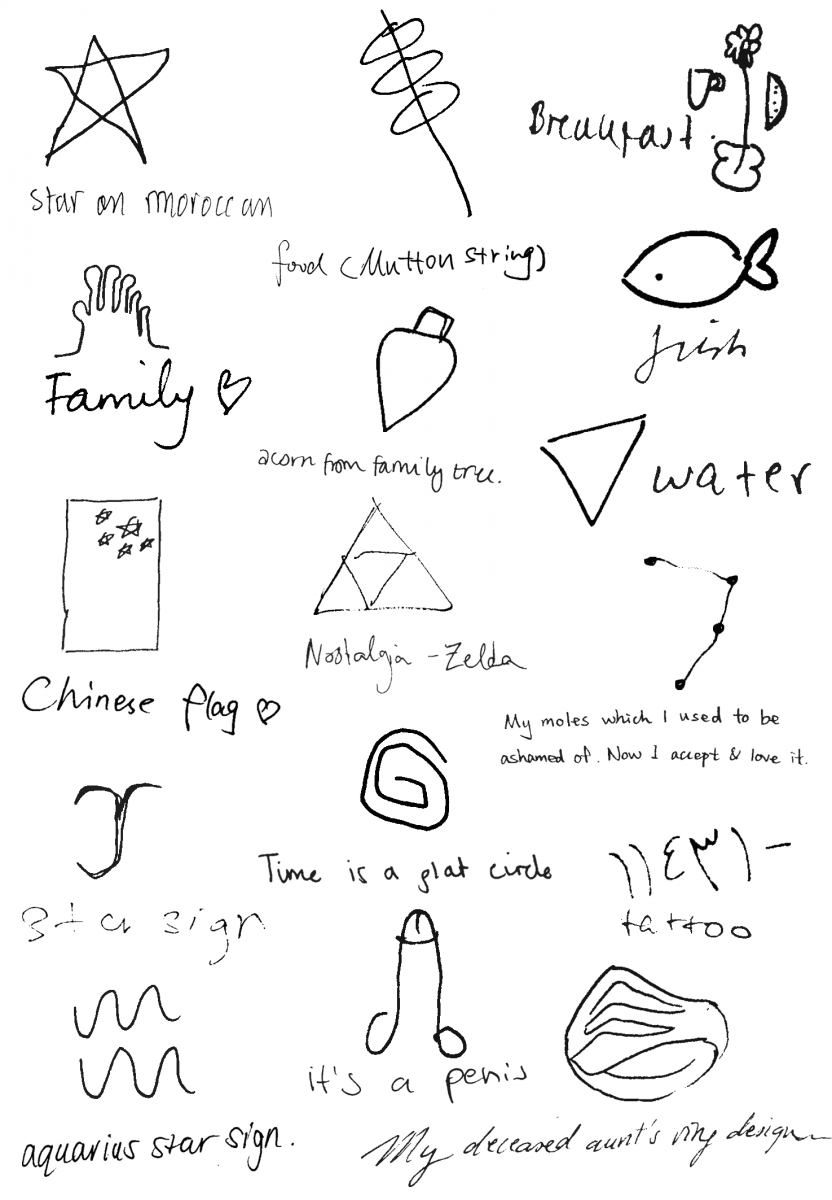 star on moroccan
Breakfast.
food (Mutton string)
Family ♡
acorn from family tree.
water
Chinese flag ♡
Nostalgia - Zelda
My moles which I used to be
ashamed of. Now I accept & love it.
Time is a flat circle
١١٤٣١-
star sign
tattoo
it's a penis
aquarius star sign.
My deceased aunt's ring design